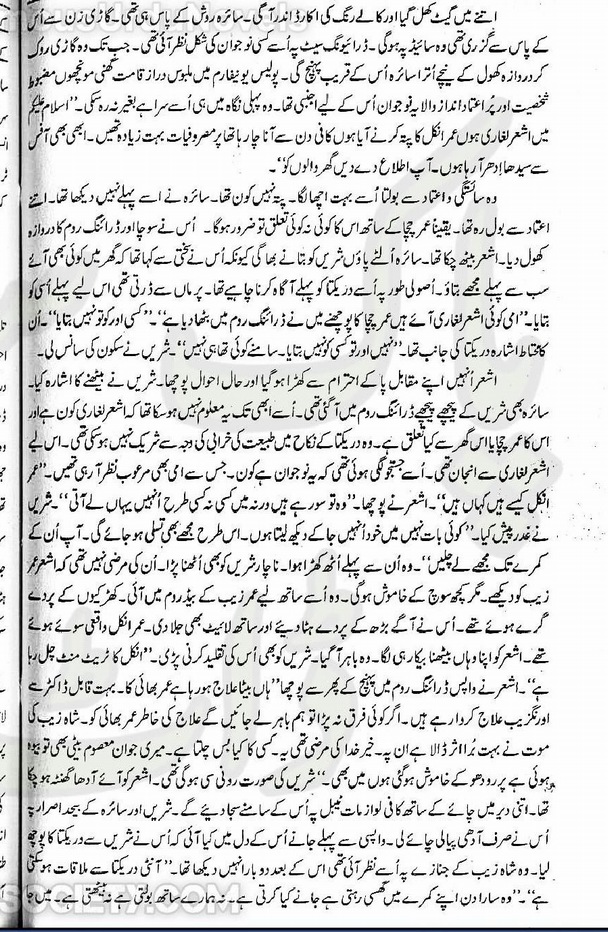 اتنے میں گیٹ کھل گیا اور کالے رنگ کی اکارڈ اندر آ گئی۔ سائرہ روش کے پاس ہی تھی۔ گاڑی زن سے اُس
کے پاس سے گزری تھی وہ سائیڈ پہ ہو گی۔ ڈرائیونگ سیٹ پہ اُسے کسی نوجوان کی شکل نظر آئی تھی۔ جب تک وہ گاڑی روک
کر دروازہ کھول کے نیچے اُترا سائرہ اُس کے قریب پہنچ گی۔ پولیس یونیفارم میں ملبوس دراز قامت گھنی مونچھوں مضبوط
شخصیت اور پُر اعتماد انداز والا یہ نوجوان اُس کے لیے اجنبی تھا۔ وہ پہلی نگاہ میں ہی اُسے سراہے بغیر نہ رہ سکی۔ ''اسلام علیکم
میں اشعر لغاری ہوں عمر انکل کا پتہ کرنے آیا ہوں کافی دن سے آنا چاہ رہا تھا پر مصروفیات بہت زیادہ تھیں۔ ابھی بھی آفس
سے سیدھا اِدھر آ رہا ہوں۔ آپ اطلاع دے دیں گھر والوں کو''۔
وہ شائستگی و اعتماد سے بولتا اُسے بہت اچھا لگا۔ پتہ نہیں کون تھا۔ سائرہ نے اسے پہلے نہیں دیکھا تھا۔ اتنے
اعتماد سے بول رہ تھا۔ یقیناً عمر چچا کے ساتھ اس کا کوئی نہ کوئی تعلق تو ضرور ہو گا۔ اُس نے سوچا اور ڈرائنگ روم کا دروازہ
کھول دیا۔ اشعر بیٹھ چکا تھا۔ سائرہ اُلٹے پاؤں شریں کو بتانے بھاگی کیونکہ اُس نے سختی سے کہا تھا کہ گھر میں کوئی بھی آئے
سب سے پہلے مجھے بتاؤ۔ اُصولی طور پہ اُسے دریکتا کو پہلے آگاہ کرنا چاہیے تھا۔ پر ماں سے ڈرتی تھی اس لیے پہلے اُسی کو
بتایا۔ ''امی کوئی اشعر لغاری آئے ہیں عمر چچا کا پوچھنے میں نے ڈرائنگ روم میں بٹھا دیا ہے''۔ ''کسی اور کو تو نہیں بتایا''۔ اُن
کا محتاط اشارہ دریکتا کی جانب تھا۔ ''نہیں اور تو کسی کو نہیں بتایا۔ سامنے کوئی تھا ہی نہیں''۔ شریں نے سکون کی سانس لی۔
اشعر اُنہیں اپنے مقابل پا کے احترام سے کھڑا ہو گیا اور حال احوال پوچھا۔ شریں نے بیٹھنے کا اشارہ کیا۔
سائرہ بھی شریں کے پیچھے پیچھے ڈرائنگ روم میں آ گئی تھی۔ اُسے ابھی تک یہ معلوم نہیں ہو سکا تھا کہ اشعر لغاری کون ہے اور
اس کا عمر چچا یا اس گھر سے کیا تعلق ہے۔ وہ دریکتا کے نکاح میں طبیعت کی خرابی کی وجہ سے شریک نہیں ہو سکی تھی۔ اس لیے
اشعر لغاری سے انجان تھی۔ اُسے جستجو لگی ہوئی تھی کہ یہ نوجوان ہے کون۔ جس سے امی بھی مرعوب نظر آ رہی تھیں۔ ''عمر
انکل کیسے ہیں کہاں ہیں''۔ اشعر نے پوچھا۔ ''وہ تو سو رہے ہیں ورنہ میں کسی نہ کسی طرح اُنہیں یہاں لے آتی''۔ شریں
نے عذر پیش کیا۔ ''کوئی بات نہیں میں خود اُنہیں جا کے دیکھ لیتا ہوں۔ اس طرح مجھے بھی تسلی ہو جائے گی۔ آپ اُن کے
کمرے تک مجھے لے چلیں''۔ وہ اُن سے پہلے اُٹھ کھڑا ہوا۔ ناچار شریں کو بھی اُٹھنا پڑا۔ اُن کی مرضی نہیں تھی کہ اشعر عمر
زیب کو دیکھے۔ مگر کچھ سوچ کے خاموش ہو گی۔ وہ اُسے ساتھ لیے عمر زیب کے بیڈ روم میں آئی۔ کھڑکیوں کے پردے
گرے ہوئے تھے۔ اُس نے آگے بڑھ کے پردے ہٹا دیے اور ساتھ لائیٹ بھی جلا دی۔ عمر انکل واقعی سوئے ہوئے
تھے۔ اشعر کو اپنا وہاں بیٹھنا بیکار ہی لگا۔ وہ باہر آ گیا۔ شریں کو بھی اُس کی تقلید کرنی پڑی۔ ''انکل کا ٹریٹ منٹ چل رہا
ہے''۔ اشعر نے واپس ڈرائنگ روم میں پہنچ کے پھر سے پوچھا ''ہاں بیٹا علاج ہو رہا ہے عمر بھائی کا۔ بہت قابل ڈاکٹر سے
اورنگزیب علاج کروا رہے ہیں۔ اگر کوئی فرق نہ پڑا تو ہم باہر لے جائیں گے علاج کی خاطر عمر بھائی کو۔ شاہ زیب کی
موت نے بہت بُرا اثر ڈالا ہے ان پہ۔ خیر خدا کی مرضی تھی یہ۔ کسی کا کیا بس چلتا ہے۔ میری جوان معصوم بیٹی بھی تو بیوہ
ہوئی ہے پر رو دھو کے خاموش ہو گئی ہوں میں بھی۔'' شریں کی صورت رونی سی ہو گی تھی۔ اشعر کو آئے آدھا گھنٹہ ہو چکا
تھا۔ اتنی دیر میں چائے کے ساتھ کافی لوازمات ٹیبل پہ اُس کے سامنے سجا دیے گے۔ شریں اور سائرہ کے بیحد اصرار پہ
اُس نے صرف آدھی پیالی چائے لی۔ واپسی سے پہلے جانے اُس کے دل میں کیا آئی کہ اُس نے شریں سے دریکتا کا پوچھ
لیا۔ وہ شاہ زیب کے جنازے پہ اُسے نظر آئی تھی اس کے بعد دوبارا نہیں دیکھا تھا۔ ''آنٹی دریکتا سے ملاقات ہو سکتی
ہے''۔ ''وہ سارا دن اپنے کمرے میں گھسی رہتی ہے جانے کیا کرتی ہے۔ نہ ہمارے ساتھ بولتی ہے نہ بیٹھتی ہے۔ میں جا
SOCIETY.COM